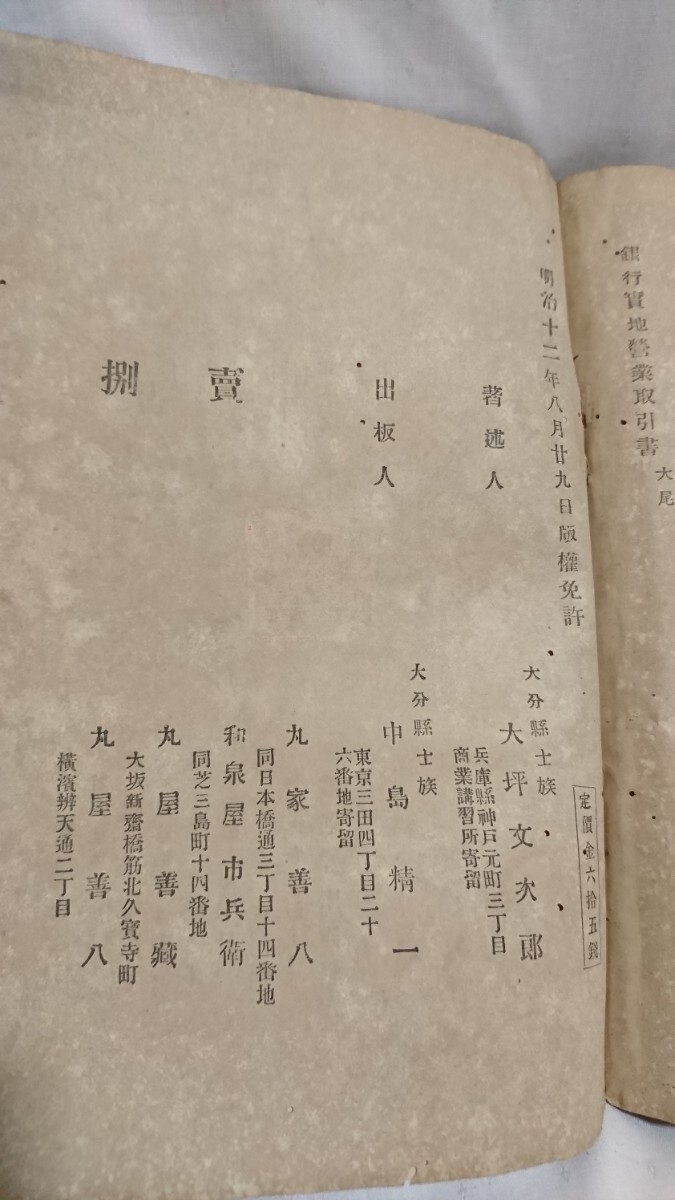 銀行實地營業取引書 大尾
明治十二年八月廿九日版權免許
定價金六拾五錢
著述人
大分縣士族
大坪文次郎
兵庫縣神戸元町三丁目
商業講習所寄留
出板人
大分縣士族
中島精一
東京三田四丁目二十
六番地寄留
賣捌
丸家善八
同日本橋通三丁目十四番地
和泉屋市兵衛
同芝三島町十四番地
丸屋善藏
大坂新齋橋筋北久寶寺町
丸屋善八
横濱辨天通二丁目